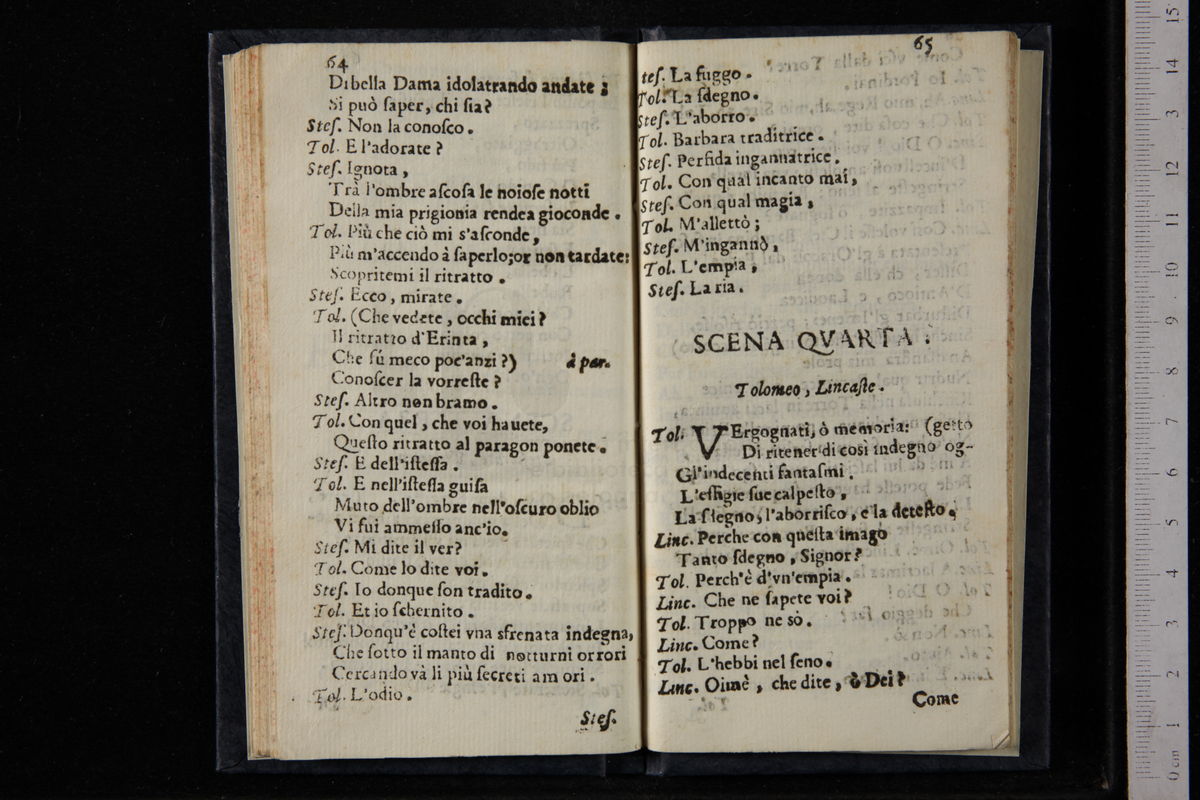 64
Di bella Dama idolatrando andate;
Si può saper, chi sia?
Stes. Non la conosco.
Tol. E l'adorate?
Stes. Ignota,
Trà l'ombre ascosa le noiose notti
Della mia prigionia rendea gioconde.
Tol. Più che ciò mi s'asconde,
Più m'accendo á saperlo; or non tardate:
Scopritemi il ritratto.
Stes. Ecco, mirate.
Tol. (Che vedete, occhi miei?
Il ritratto d'Erinta,
Che fú meco poc'anzi?) à par.
Conoscer la vorreste?
Stes. Altro non bramo.
Tol. Con quel, che voi hauete,
Questo ritratto al paragon ponete.
Stes. E dell'istessa.
Tol. E nell'istessa guisa
Muto dell'ombre nell'oscuro oblio
Vi fui ammesso anc'io.
Stes. Mi dite il ver?
Tol. Come lo dite voi.
Stes. Io donque son tradito.
Tol. Et io schernito.
Stes. Donqu'è costei vna sfrenata indegna,
Che sotto il manto di notturni orrori
Cercando và li più secreti amori.
Tol. L'odio.
Stes.
65
tes. La fuggo.
Tol. La sdegno.
Stes. L'aborro.
Tol. Barbara traditrice.
Stes. Perfida ingannatrice.
Tol. Con qual incanto mai,
Stes. Con qual magia,
Tol. M'allettò;
Stes. M'ingannò,
Tol. L'empia,
Stes. La ria.
SCENA QVARTA.
Tolomeo, Lincaste.
Tol. VErgognati, ò memoria: (getto
Di ritener di così indegno og-
Gl'indecenti fantasmi.
L'effigie sue calpesto,
La sdegno, l'aborrisco, e la detesto.
Linc. Perche con questa imago
Tanto sdegno, Signor?
Tol. Perch'è d'vn'empia.
Linc. Che ne sapete voi?
Tol. Troppo ne sò.
Linc. Come?
Tol. L'hebbi nel seno.
Linc. Oimè, che dite, ò Dei?
Come